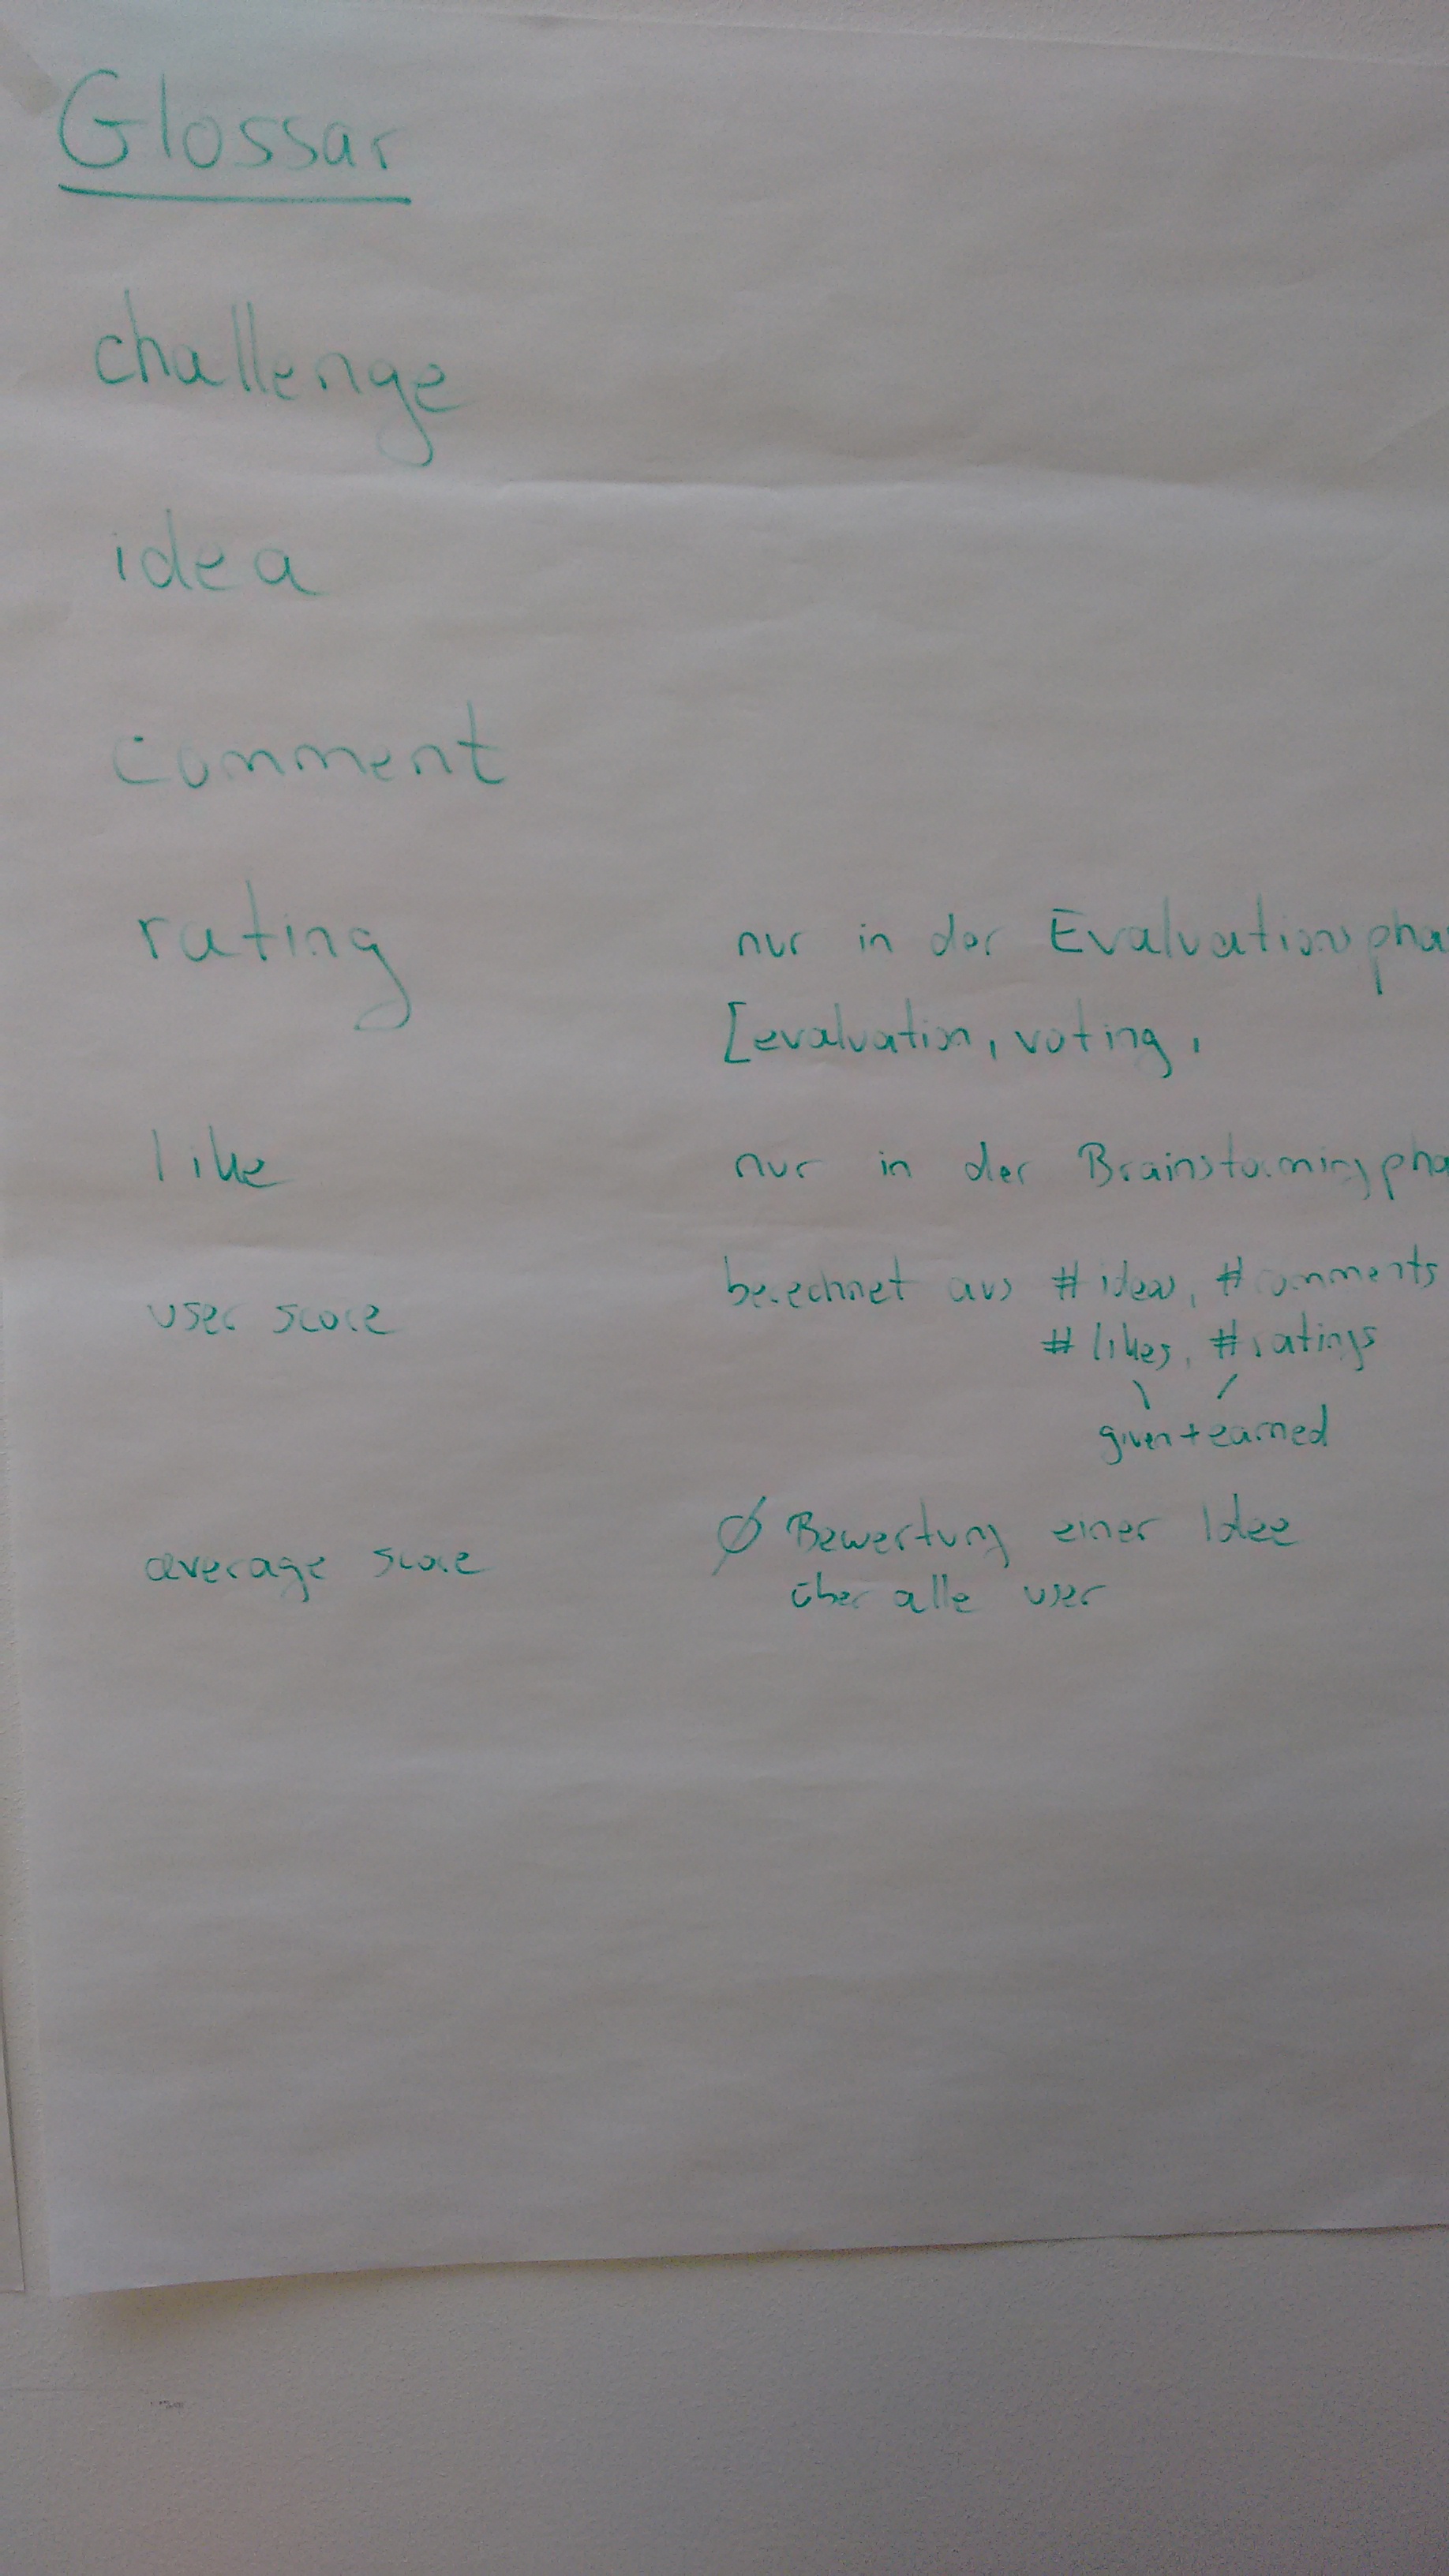 Glossar
challenge
idea
comment
rating nur in der Evaluationspha
[evaluation, voting,
like nur in der Brainstormingpha
user score berechnet aus #ideas, #comments
#likes, #ratings
given + earned
average score Ø Bewertung einer Idee
über alle user